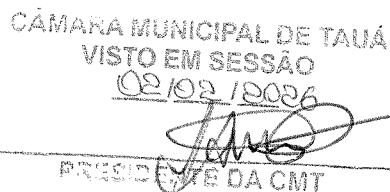 CÂMARA MUNICIPAL DE TAUÁ
VISTO EM SESSÃO
02/02/2026
PRESIDENTE DA CMT